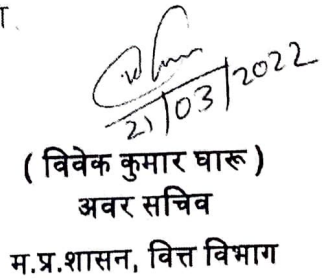 21/03/2022
( विवेक कुमार घारू )
अवर सचिव
म.प्र.शासन, वित्त विभाग